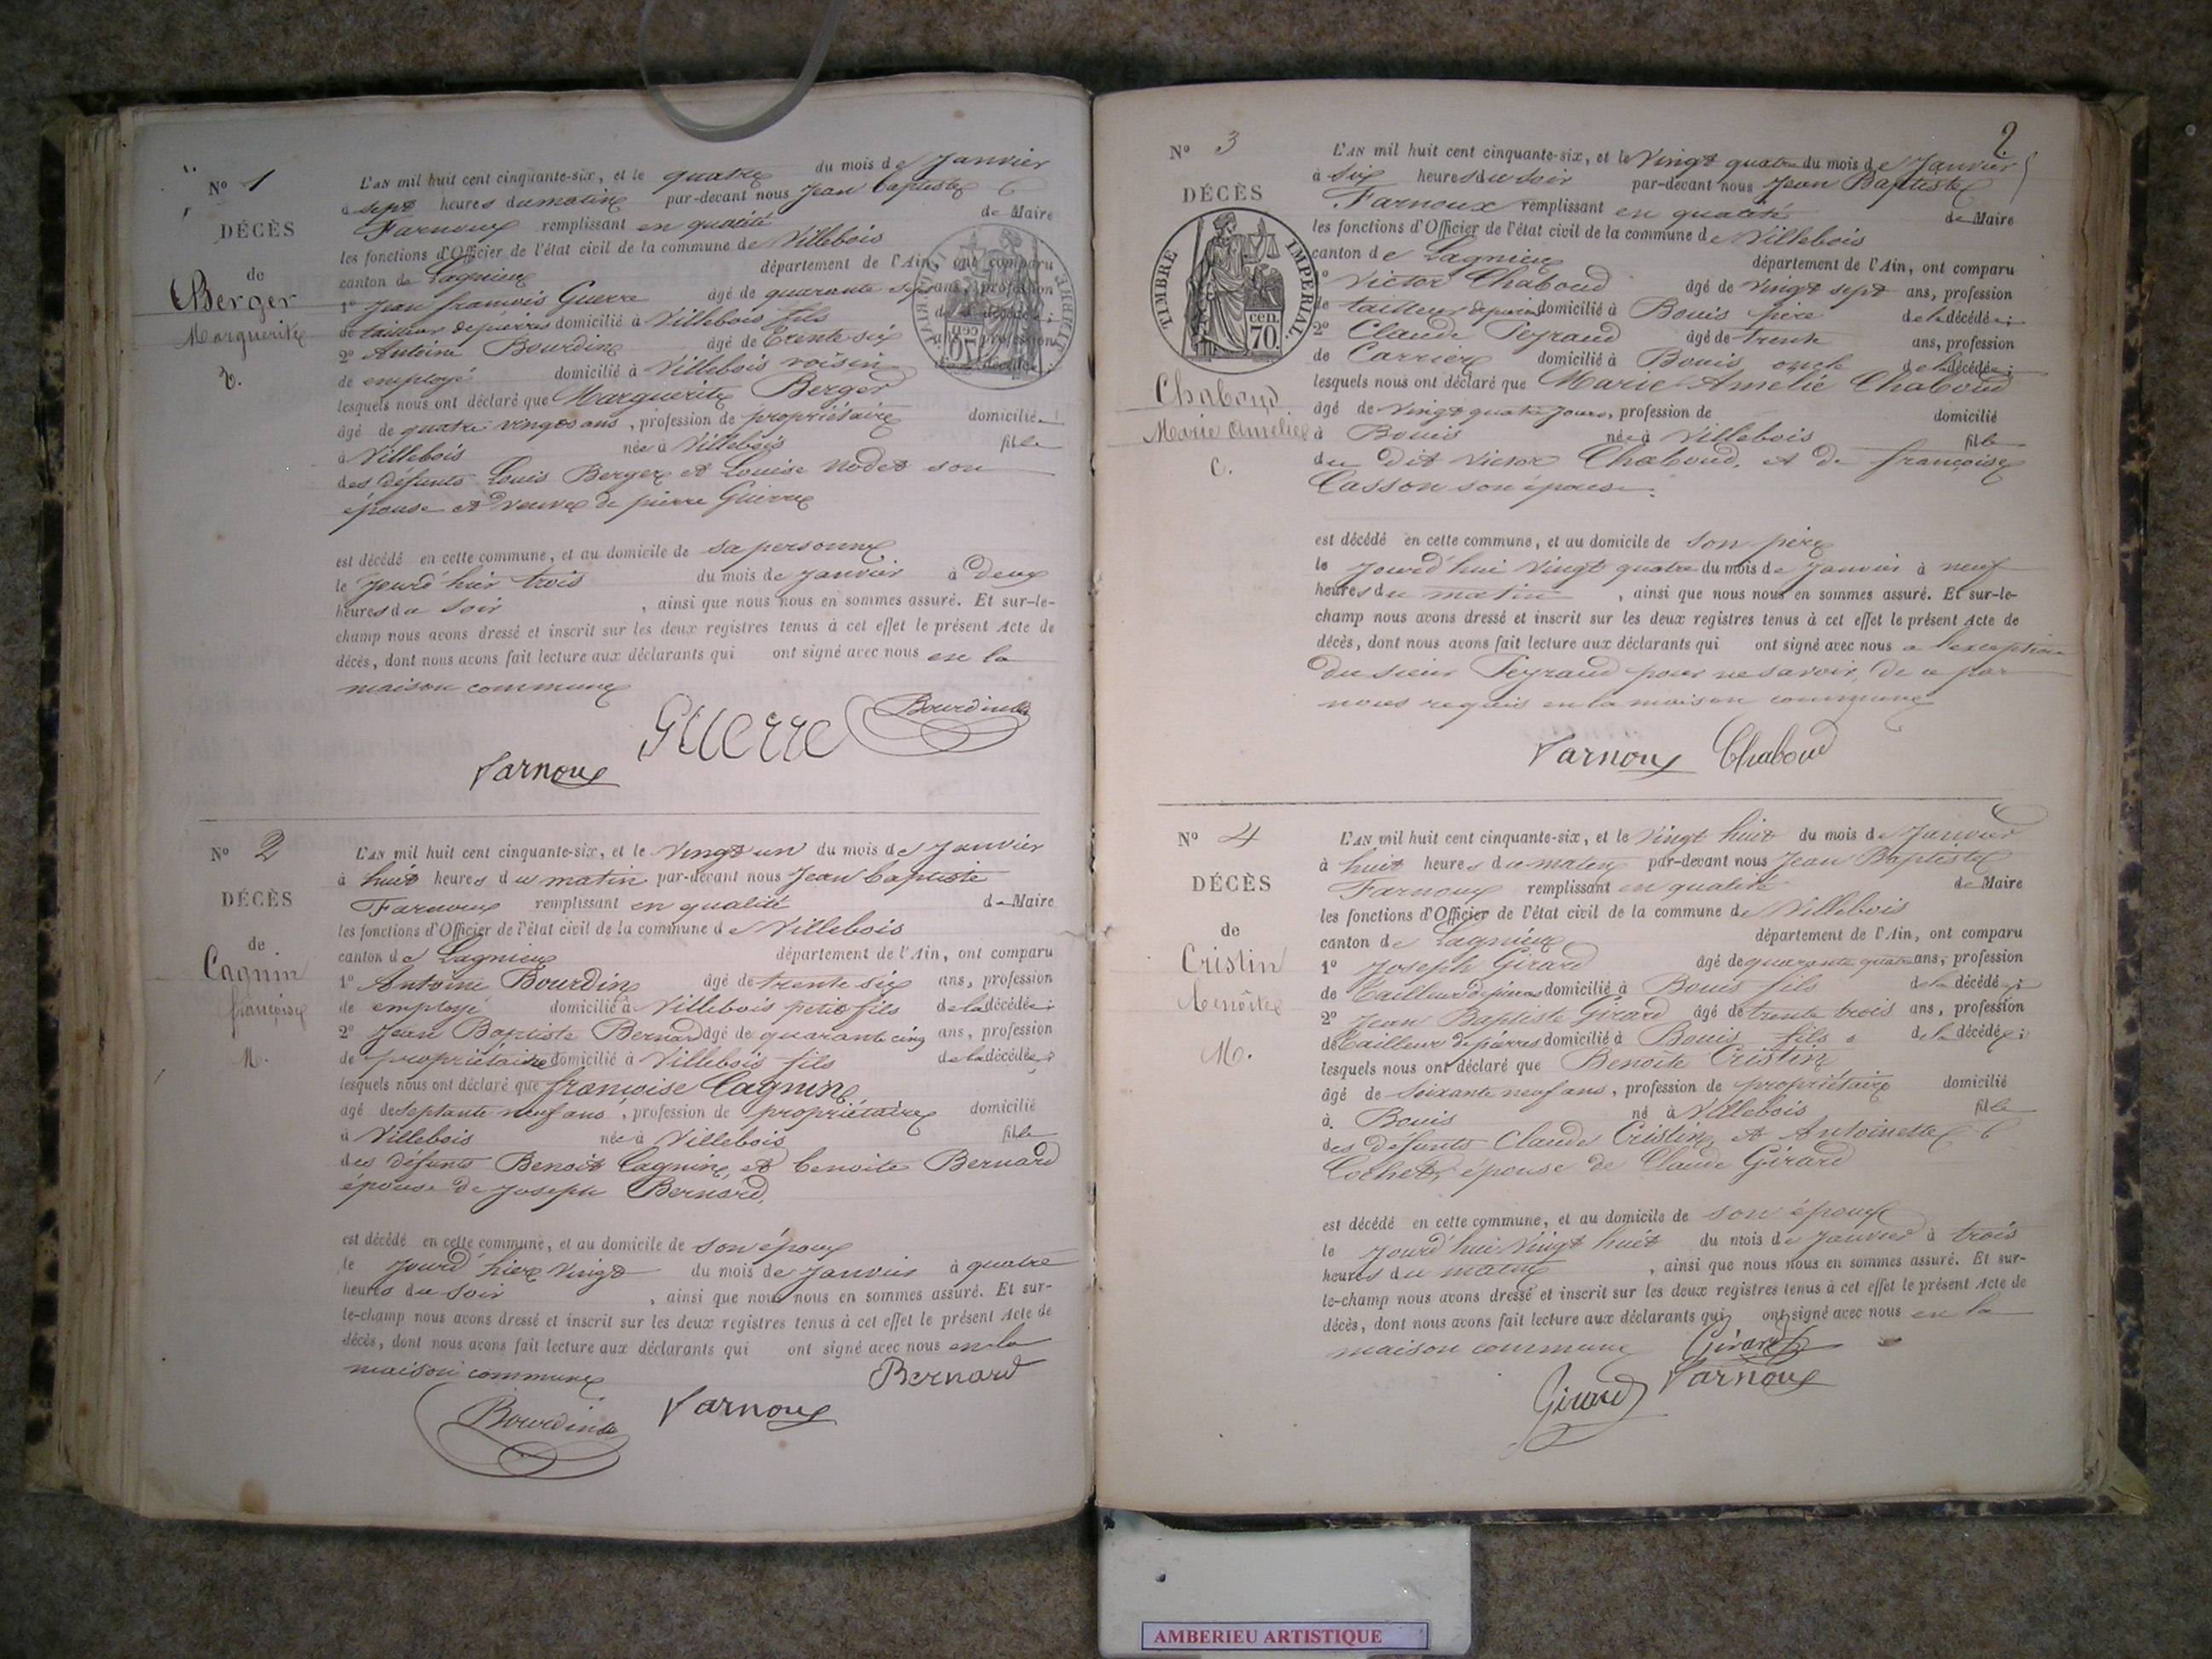 N° 1
DÉCÈS
de
Berger
Marguerite
V.
L'AN mil huit cent cinquante-six, et le quatre du mois de Janvier
à sept heures du matin par-devant nous Jean Baptiste
Farnoux remplissant en qualité de Maire
les fonctions d'Officier de l'état civil de la commune de Villebois
canton de Lagnieu département de l'Ain, ont comparu
1° Jean françois Guerre âgé de quarante sept ans, profession
de tailleur de pierres domicilié à Villebois fils de la décédée;
2° Antoine Bourdin âgé de trente six ans, profession
de employé domicilié à Villebois voisin de la décédée;
lesquels nous ont déclaré que Marguerite Berger
âgé de quatre vingts ans, profession de propriétaire domicilié
à Villebois née à Villebois fille
des défunts Louis Berger et Louise Nodet son
épouse et veuve de pierre Guerre
est décédé en cette commune, et au domicile de sa personne
le jourd'hier trois du mois de Janvier à deux
heures du soir, ainsi que nous nous en sommes assuré. Et sur-le-
champ nous avons dressé et inscrit sur les deux registres tenus à cet effet le présent Acte de
décès, dont nous avons fait lecture aux déclarants qui ont signé avec nous en la
maison commune
GUerre Bourdin
Farnoux
N° 2
DÉCÈS
de
Cagnin
françoise
M.
L'AN mil huit cent cinquante-six, et le vingt un du mois de Janvier
à huit heures du matin par-devant nous Jean baptiste
Farnoux remplissant en qualité de Maire
les fonctions d'Officier de l'état civil de la commune de Villebois
canton de Lagnieu département de l'Ain, ont comparu
1° Antoine Bourdin âgé de trente six ans, profession
de employé domicilié à Villebois petit fils de la décédée;
2° Jean Baptiste Bernard âgé de quarante cinq ans, profession
de propriétaire domicilié à Villebois fils de la décédée;
lesquels nous ont déclaré que françoise Cagnin
âgé de septante neuf ans, profession de propriétaire domicilié
à Villebois née à Villebois fille
des défunts Benoit Cagnin, et benoite Bernard
épouse de Joseph Bernard,
est décédé en cette commune, et au domicile de son époux
le jourd'hier vingt du mois de Janvier à quatre
heures du soir, ainsi que nous nous en sommes assuré. Et sur-
le-champ nous avons dressé et inscrit sur les deux registres tenus à cet effet le présent Acte de
décès, dont nous avons fait lecture aux déclarants qui ont signé avec nous en la
maison commune Bernard
Bourdin Farnoux
2
N° 3
DÉCÈS
TIMBRE IMPERIAL.
cen.
70.
Chaboud
Marie Amélie
C.
L'AN mil huit cent cinquante-six, et le vingt quatre du mois de Janvier
à six heures du soir par-devant nous Jean Baptiste
Farnoux remplissant en qualité de Maire
les fonctions d'Officier de l'état civil de la commune de Villebois
canton de Lagnieu département de l'Ain, ont comparu
1° Victor Chaboud âgé de vingt sept ans, profession
de tailleur de pierres domicilié à Bouis père de la décédée;
2° Claude Peyraud âgé de trente ans, profession
de Carrier domicilié à Bouis oncle de la décédée;
lesquels nous ont déclaré que Marie Amelie Chaboud
âgé de vingt quatre jours, profession de domicilié
à Bouis née à Villebois fille
du dit Victor Chaboud, et de françoise
Casson son épouse.
est décédé en cette commune, et au domicile de son père
le jourd'hui vingt quatre du mois de Janvier à neuf
heures du matin, ainsi que nous nous en sommes assuré. Et sur-le-
champ nous avons dressé et inscrit sur les deux registres tenus à cet effet le présent Acte de
décès, dont nous avons fait lecture aux déclarants qui ont signé avec nous a l'exception
du sieur Peyraud pour ne savoir, de ce par
nous requis en la maison commune
Farnoux Chaboud
N° 4
DÉCÈS
de
Cristin
benoîte
M.
L'AN mil huit cent cinquante-six, et le vingt huit du mois de Janvier
à huit heures du matin par-devant nous Jean Baptiste
Farnoux remplissant en qualité de Maire
les fonctions d'Officier de l'état civil de la commune de Villebois
canton de Lagnieu département de l'Ain, ont comparu
1° Joseph Girard âgé de quarante quatre ans, profession
de tailleur de pierres domicilié à Bouis fils de la décédée;
2° Jean Baptiste Girard âgé de trente trois ans, profession
de tailleur de pierres domicilié à Bouis fils de la décédée;
lesquels nous ont déclaré que Benoîte Cristin
âgé de soixante neuf ans, profession de propriétaire domicilié
à Bouis né à Villebois fille
des défunts Claude Cristin, et Antoinette
Cochet, épouse de Claude Girard
est décédé en cette commune, et au domicile de son époux
le jourd'hui vingt huit du mois de Janvier à trois
heures du matin, ainsi que nous nous en sommes assuré. Et sur-
le-champ nous avons dressé et inscrit sur les deux registres tenus à cet effet le présent Acte de
décès, dont nous avons fait lecture aux déclarants qui ont signé avec nous en la
maison commune Girard
Girard Farnoux
AMBERIEU ARTISTIQUE